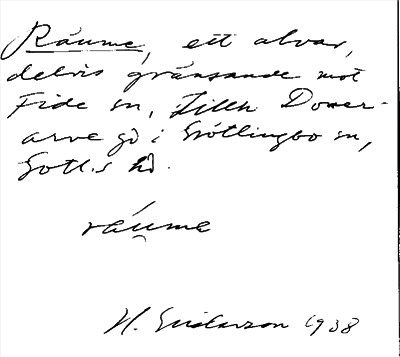 Räume, ett alvar,
delvis gränsande mot
Fide sn, Lilla Domer-
arve gd i Grötlingbo sn,
Gotl:s hd.
räume
H. Gustavson 1938